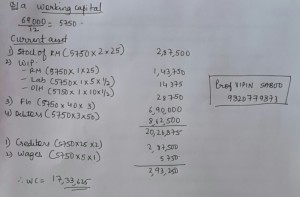 Q1a Working Capital
69000/12 = 5750
Current asset
1) Stock of RM (5750 x 2 x 25) 2,87,500
2) WIP:
- RM (5750 x 1 x 25) 1,43,750
- Lab (5750 x 5 x 1/2) 14375
- O/H (5750 x 1 x 10 x 1/2) 28750
3) FG (5750 x 40 x 3) 6,90,000
4) Debtors (5750 x 3 x 50) 8,62,500
20,26,875
1) Creditors (5750 x 25 x 2) 2,87,500
2) Wages (5750 x 5 x 1) 5750
2,93,250
∴ WC = 17,33,625
Prof VIPIN SABOO
9820779873